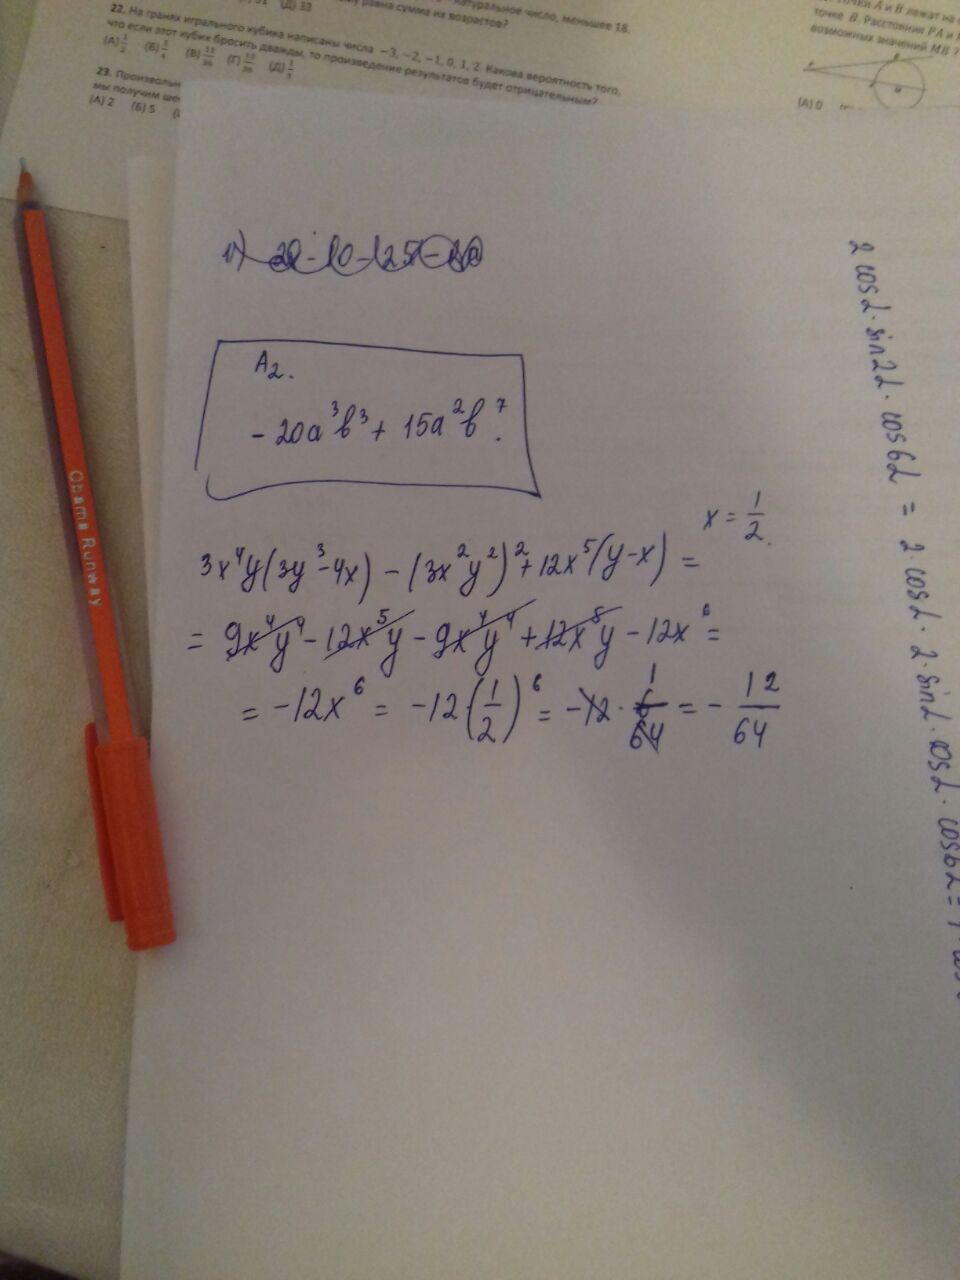 (Д) 33
натуральное число, меньшее 18.
равна сумма их возрастов?
22. На гранях игрального кубика написаны числа −3, −2, −1, 0, 1, 2. Какова вероятность того,
что если этот кубик бросить дважды, то произведение результатов будет отрицательным?
(А) 1/2 (Б) 1/4 (В) 11/36 (Г) 13/36 (Д) 1/3
23. Произвольн
мы получим
(А) 2 (Б) 5
А и В лежат на
точке B. Расстояния PA и
возможных значений MB ?
(А) 0
A₂.
-20a³b³ + 15a²b⁷.
x = 1/2.
3x⁴y(3y³-4x) - (3x²y²)² + 12x⁵(y-x) =
= 9x⁴y⁴ - 12x⁵y - 9x⁴y⁴ + 12x⁵y - 12x⁶ =
= -12x⁶ = -12(1/2)⁶ = -12 · 1/64 = - 12/64
2 cosα · sin2α · cos6α = 2 · cosα · 2 · sinα · cosα · cos6α =
Obama Runway